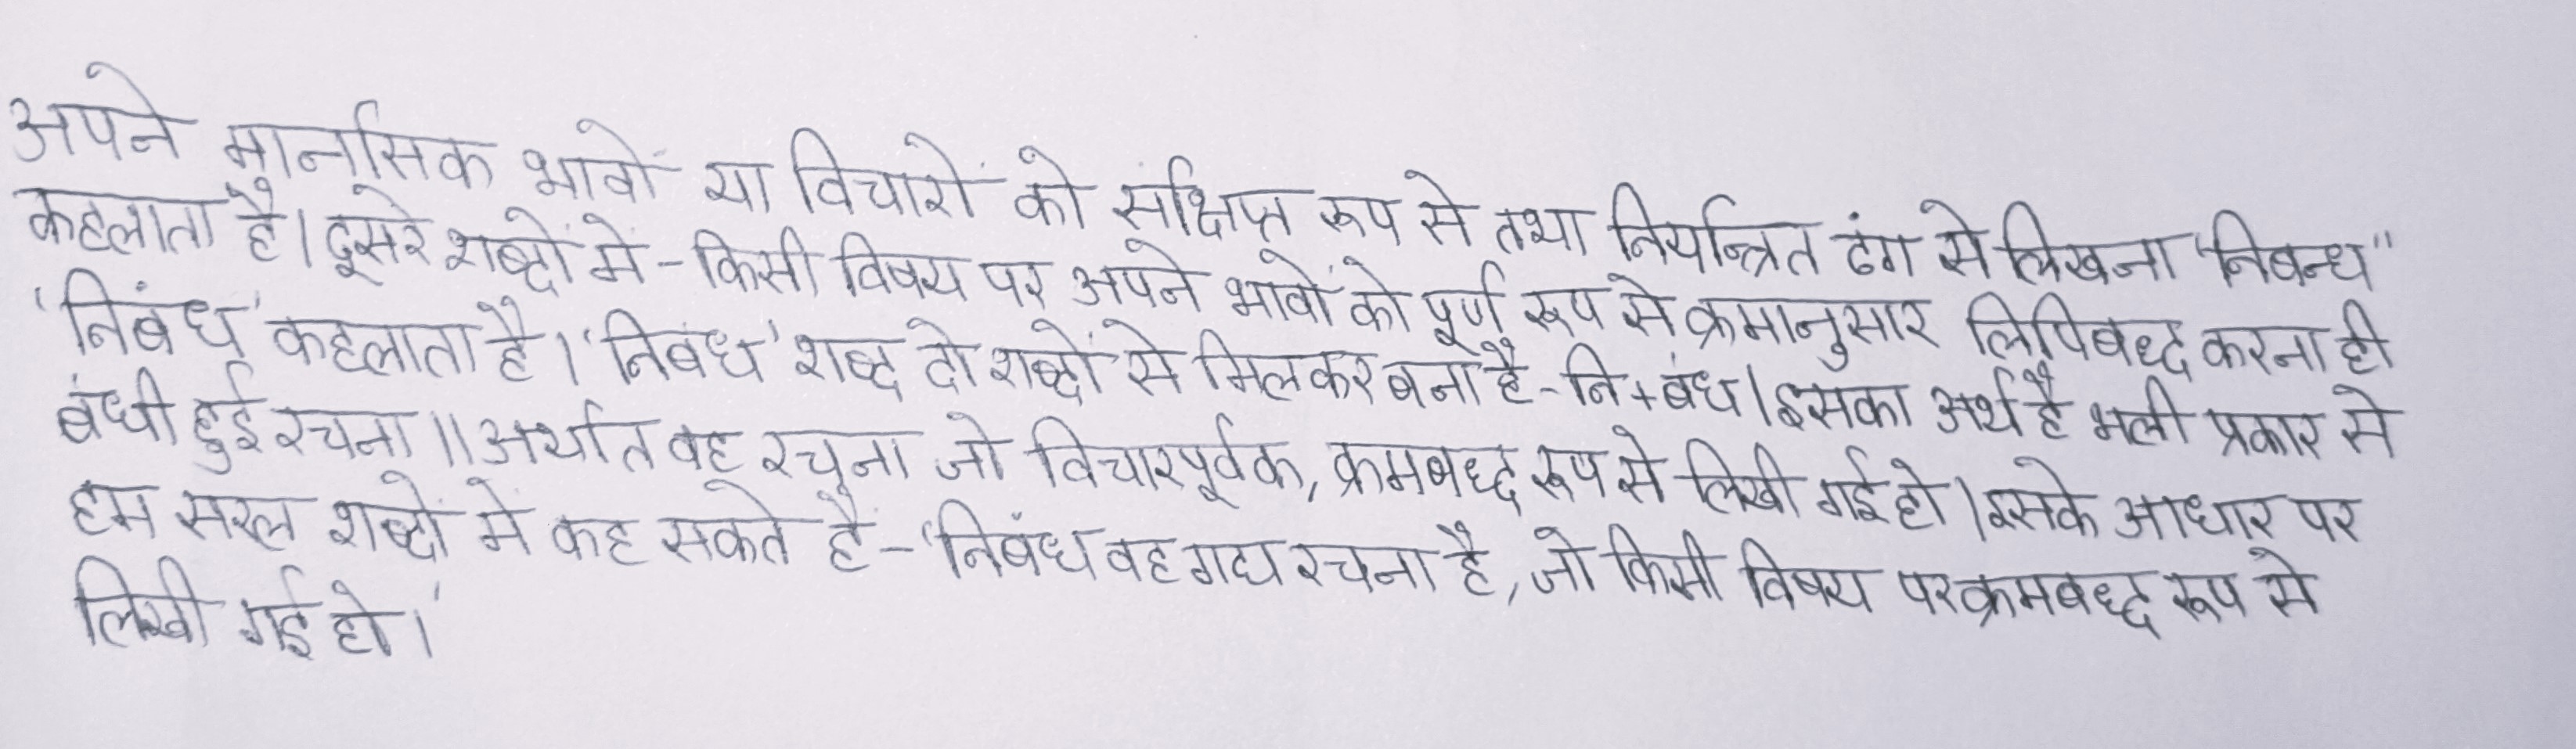 अपने मानसिक भावों या विचारों को संक्षिप्त रूप से तथा नियन्त्रित ढंग से लिखना "निबन्ध"
कहलाता है। दूसरे शब्दों में - किसी विषय पर अपने भावों को पूर्ण रूप से क्रमानुसार लिपिबद्ध करना ही
'निबंध' कहलाता है। 'निबंध' शब्द दो शब्दों से मिलकर बना है - नि + बंध। इसका अर्थ है भली प्रकार से
बंधी हुई रचना।। अर्थात वह रचना जो विचारपूर्वक, क्रमबद्ध रूप से लिखी गई हो। इसके आधार पर
हम सरल शब्दों में कह सकते हैं - 'निबंध वह गद्य रचना है, जो किसी विषय पर क्रमबद्ध रूप से
लिखी गई हो।'